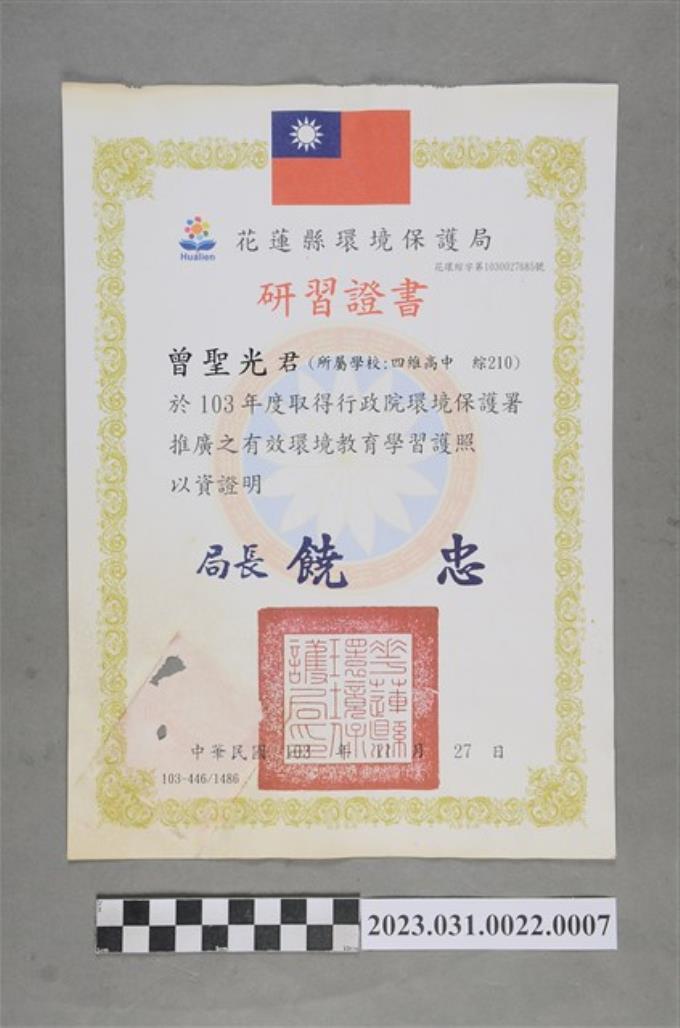 Hualien
花蓮縣環境保護局
花環綜字第1030027685號
研習證書
曾聖光君(所屬學校:四維高中 綜210)
於103年度取得行政院環境保護署
推廣之有效環境教育學習護照
以資證明
局長 饒 忠
花蓮縣環境保護局印
中華民國 103 年 11 月 27 日
103-446/1486
2023.031.0022.0007